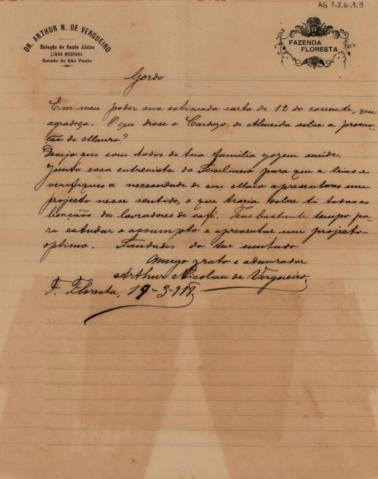 AG 1.2.6.1.9
DR. ARTHUR N. DE VERGUEIRO
Estação de Santo Aleixo
LINHA MOGYANA
Estado de São Paulo
FAZENDA
FLORESTA
Gordo
Em meu poder sua estimada carta de 12 do corrente, que
agradeço. O que disse o Cardozo de Almeida sobre a
do Mauro?
Desejo que com todos de tua familia gozem saúde.
Junto essa entrevista do para que a leias e
verifiques a necessidade de em Maio apresentares um
projecto nesse sentido, o que traria sobre ti todas as
bençãos dos lavradores de café. Tens bastante tempo pa
ra estudar o assumpto e apresentar um projecto
optimo. Saudades do teu
amigo grato e admirador
Arthur Nicolau de Vergueiro
F. Floresta, 19-3-918